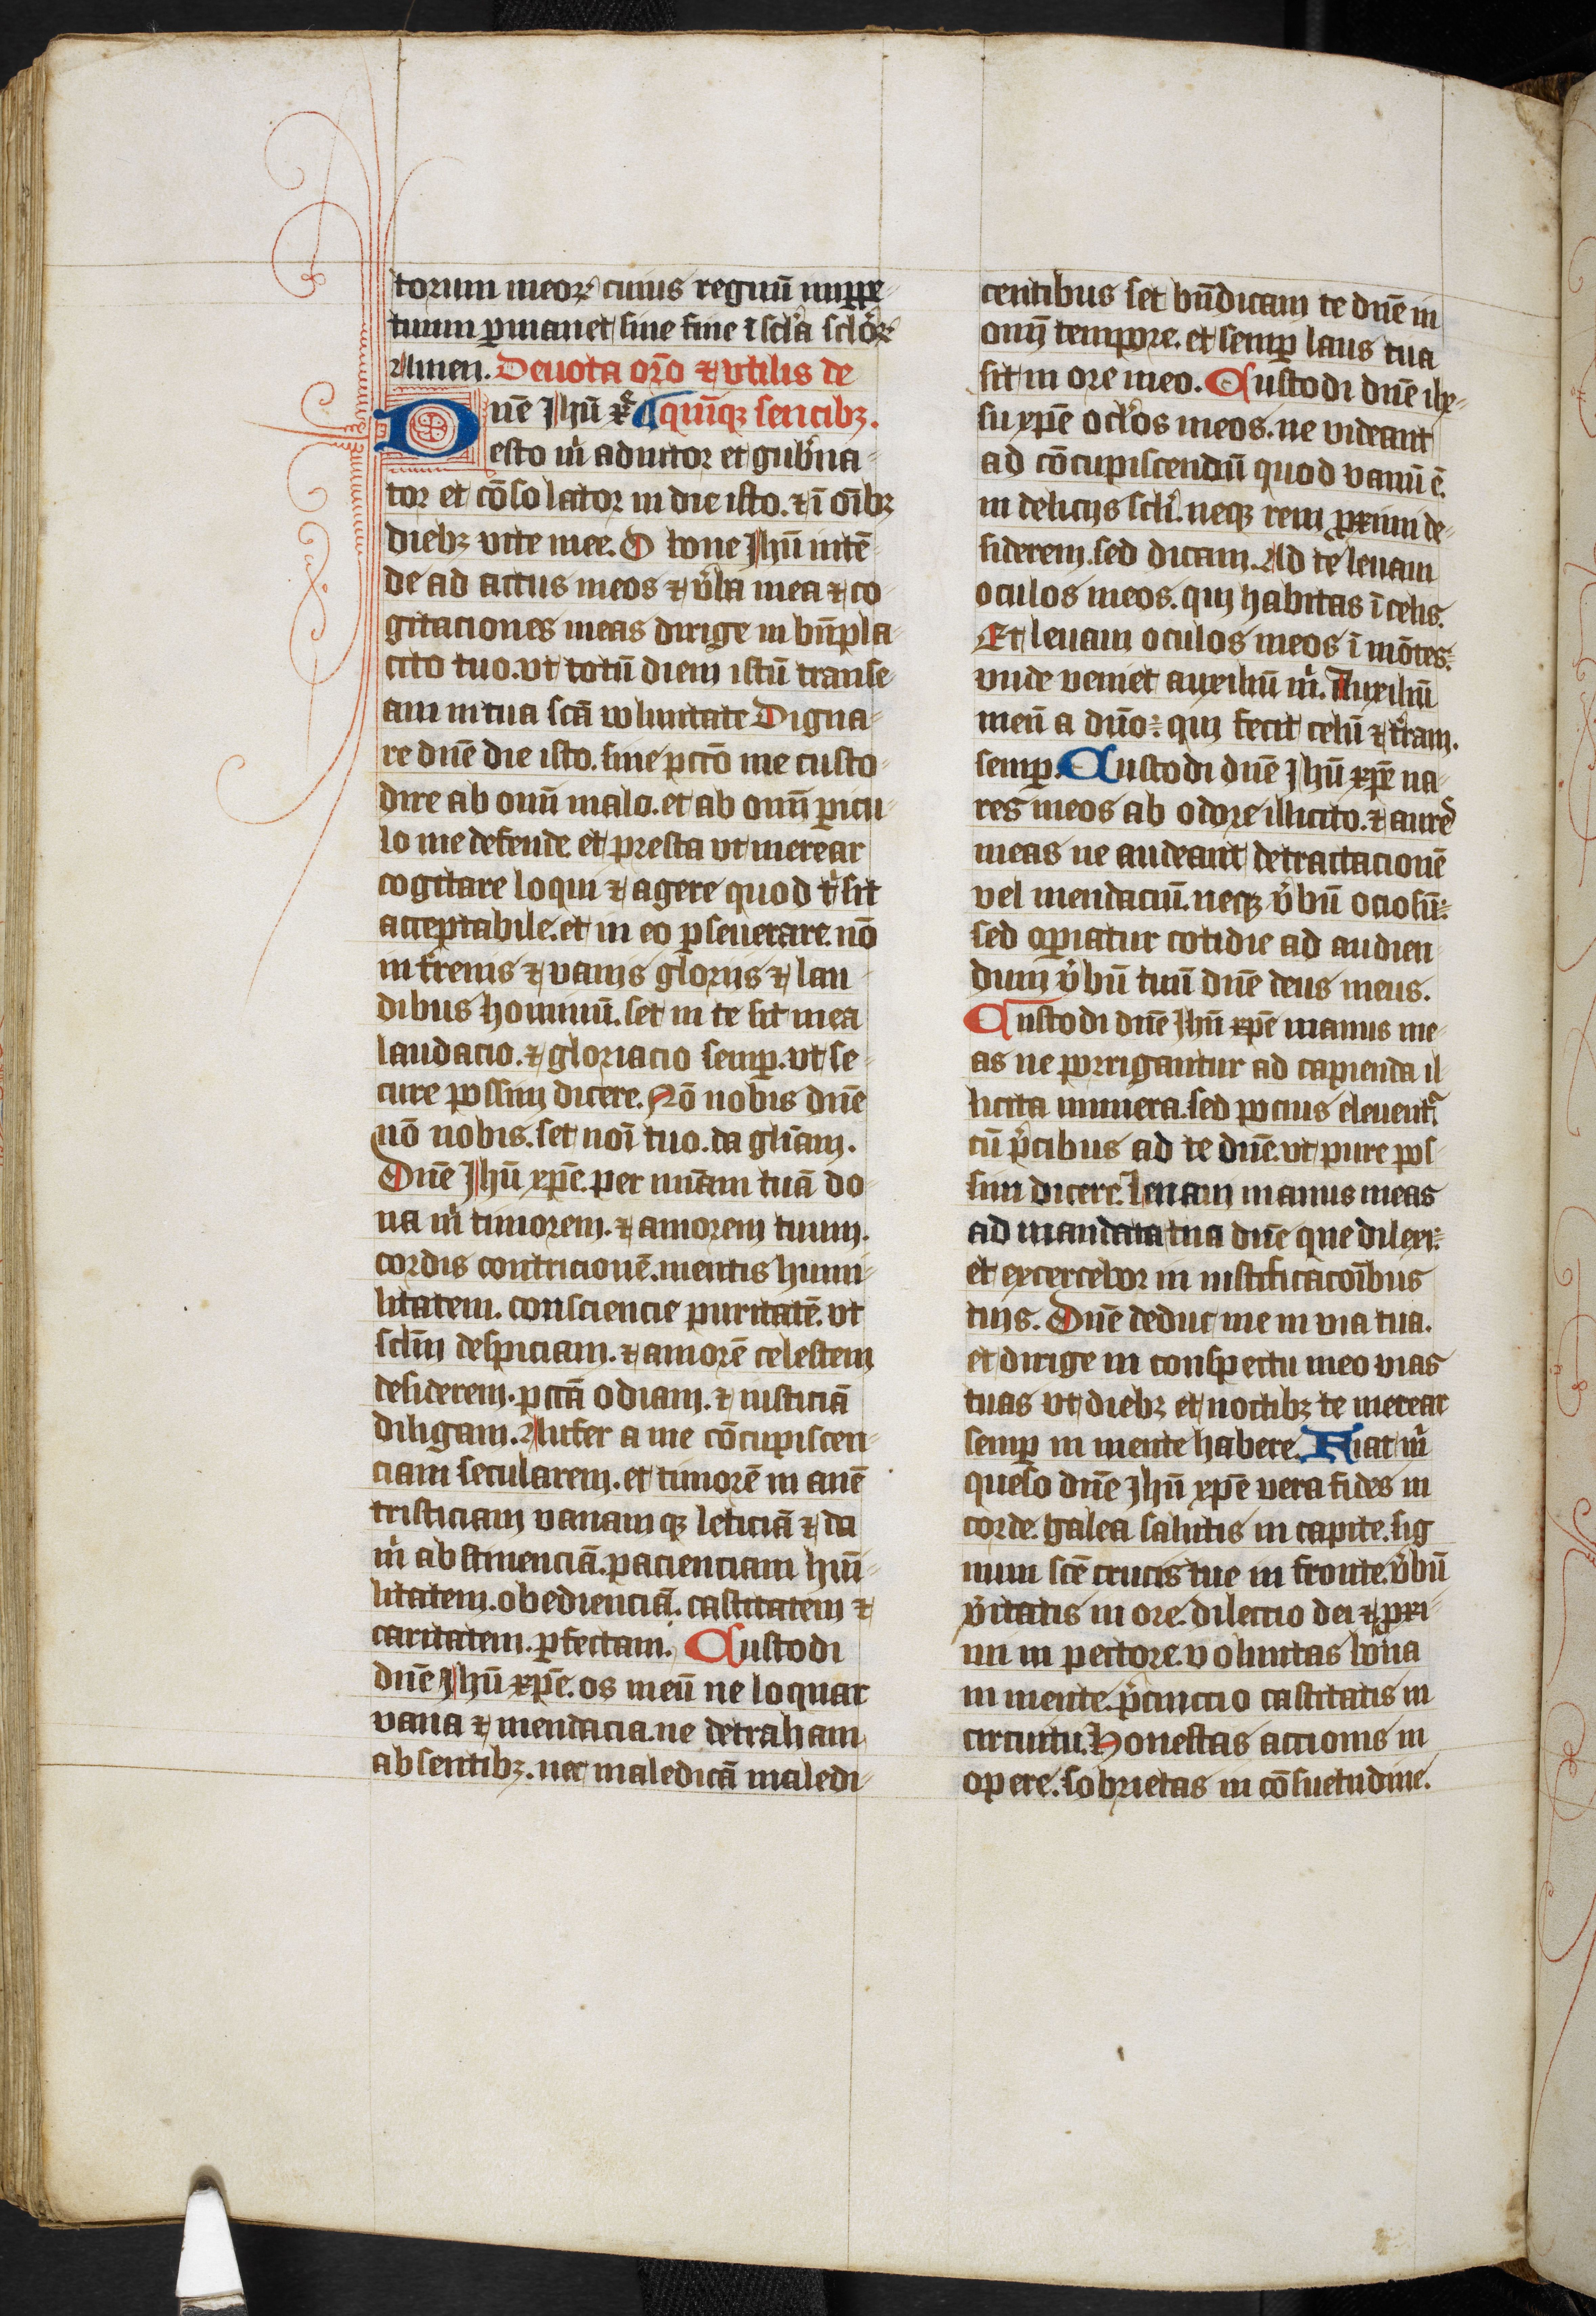 torum meoꝝ cuius regnū inꝑpe-
tuum ꝑmanet sine fine ī sc̄la sclōꝝ
Amen. Deuota or̄o ⁊ vtilis de
Dn̄e Jhū xp̄e quīqꝫ sencibꝫ.
esto m̄ adiutor et gub̄na-
tor et cōsolator in die isto. ⁊ ī oībꝫ
diebꝫ vite mee. O bone Jhū intē-
de ad actus meos ⁊ v̄ba mea ⁊ co-
gitaciones meas dirige in bn̄pla-
cito tuo. vt totū diem istū transe-
am in tua scā voluntate Digna-
re dn̄e die isto. sine pctō me custo-
dire ab om̄i malo. et ab om̄i ꝑicu-
lo me defende et presta vt merear
cogitare loqui ⁊ agere quod t̄ sit
acceptabile. et in eo ꝑseuerare. nō
in t̄renis ⁊ vanis gloriis ⁊ lau-
dibus hominū. set in te sit mea
laudacio. ⁊ gloriacio semꝑ. vt se-
cure possim dicere. Nō nobis dn̄e
nō nobis. set noī tuo. da gl̄iam.
Dn̄e Jhū xp̄e. per mīam tuā do-
na m̄ timorem. ⁊ amorem tuum.
cordis contricionē. mentis humi-
litatem. consciencie puritatē. vt
sclm̄ despiciam. ⁊ amorē celestem
desiderem. pctā odiam. ⁊ iusticiā
diligam. Aufer a me cōcupiscen-
ciam secularem. et timorē in anē
tristiciam vanam qꝫ leticiā ⁊ da
m̄ abstinenciā. pacienciam hūi-
litatem. obedienciā. castitatem ⁊
caritatem. ꝑfectam. Custodi
dn̄e Jhū xp̄e. os meū ne loquar
vana ⁊ mendacia. ne detraham
absentibꝫ. nec maledicā maledi-
centibus set bn̄dicam te dn̄e in
om̄i tempore. et semꝑ laus tua
sit in ore meo. Custodi dn̄e ihe-
su xp̄e oclōs meos. ne videant
ad cōcupiscendū quod vanū ē.
in deliciis scli. neqꝫ rem proximi de-
siderem. sed dicam. Ad te leuam
oculos meos. qui habitas ī celis.
Et leuam oculos meos ī mōtes:
vnde veniet auxiliū m̄. Auxiliū
meū a dn̄o: qui fecit celū ⁊ t̄ram.
semꝑ. Custodi dn̄e Jhū xp̄e na-
res meos ab odore illicito. ⁊ aures
meas ne audeant detractacionē
vel mendaciū. neqꝫ v̄bū ociosū:
sed operiatur cotidie ad audien-
dum v̄bū tuū dn̄e deus meus.
Custodi dn̄e Jhū xp̄e manus me-
as ne porrigantur ad capienda il-
licita munera. sed pocius eleuent̄
cū p̄cibus ad te dn̄e. vt pure pos-
sim dicere. Leuam manus meas
ad mandata tua dn̄e que dilexi:
et excercebor in iustificacoībus
tuis. Dn̄e deduc me in via tua.
et dirige in conspectu meo vias
tuas vt diebꝫ et noctibꝫ te merear
semꝑ in mente habere. Fiat m̄
queso dn̄e Jhū xp̄e vera fides in
corde. galea salutis in capite. sig
num scē crucis tue in fronte. v̄bū
v̄itatis in ore. dilectio dei ⁊ proxi-
mi in pectore. voluntas bona
in mente. p̄cinctio castitatis in
circuitu. Honestas actionis in
opere. sobrietas in cōsuetudine.